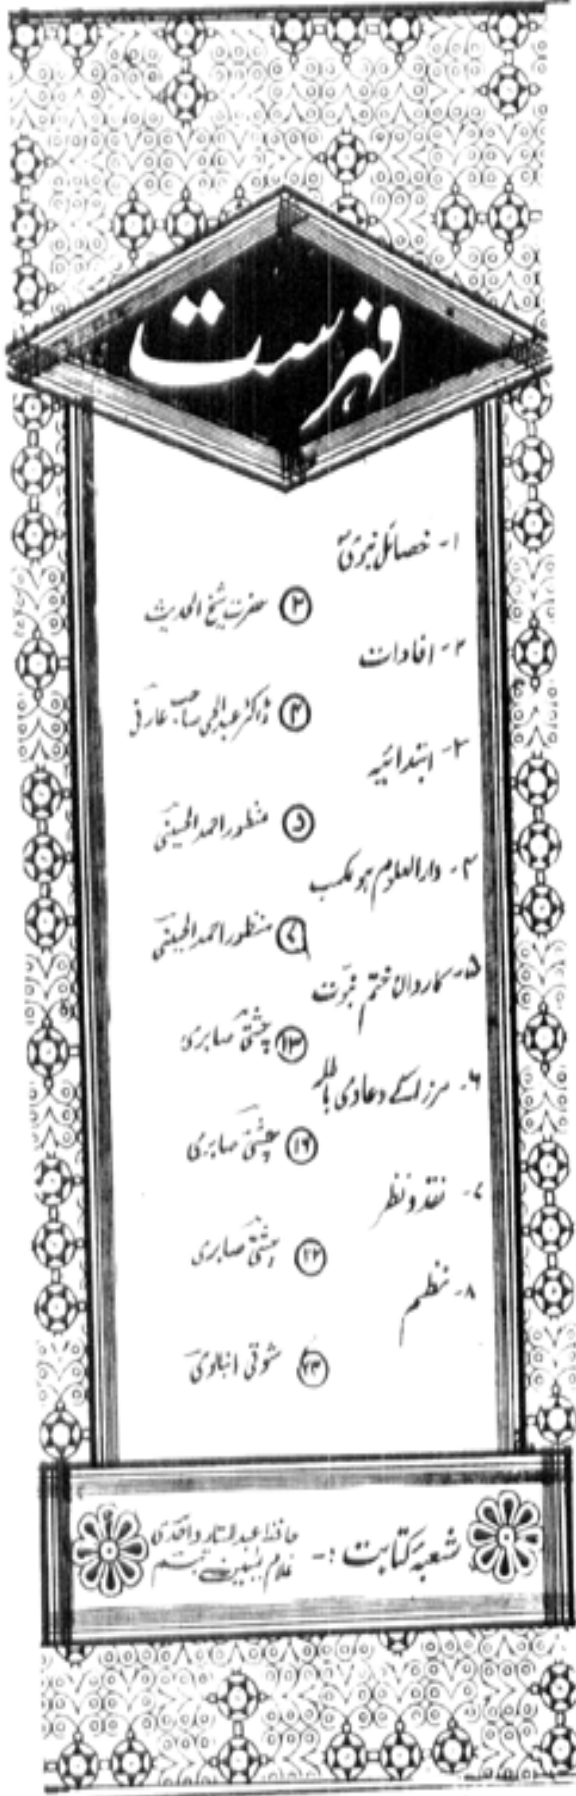 فہرست
۱- خصائل نبویؐ
۳ حضرت شیخ الحدیث
۲- افادات
۴ ڈاکٹر عبدالحی صاحب عارفی
۳- ابتدائیہ
۵ منظور احمد الحسینی
۴- دارالعلوم ہو
منظور احمد الحسینی
۵- کاروان ختم نبوت
۱۳ چشتی صابری
۶- مرزا کے دعاوی باطلہ
۱۹ چشتی صابری
۷- نقد و نظر
۲۲ چشتی صابری
۸- نظم
۲۳ شوقی انبالوی
شعبہ کتابت :-
حافظ عبدالستار واحدی
غلام یٰسین تبسم